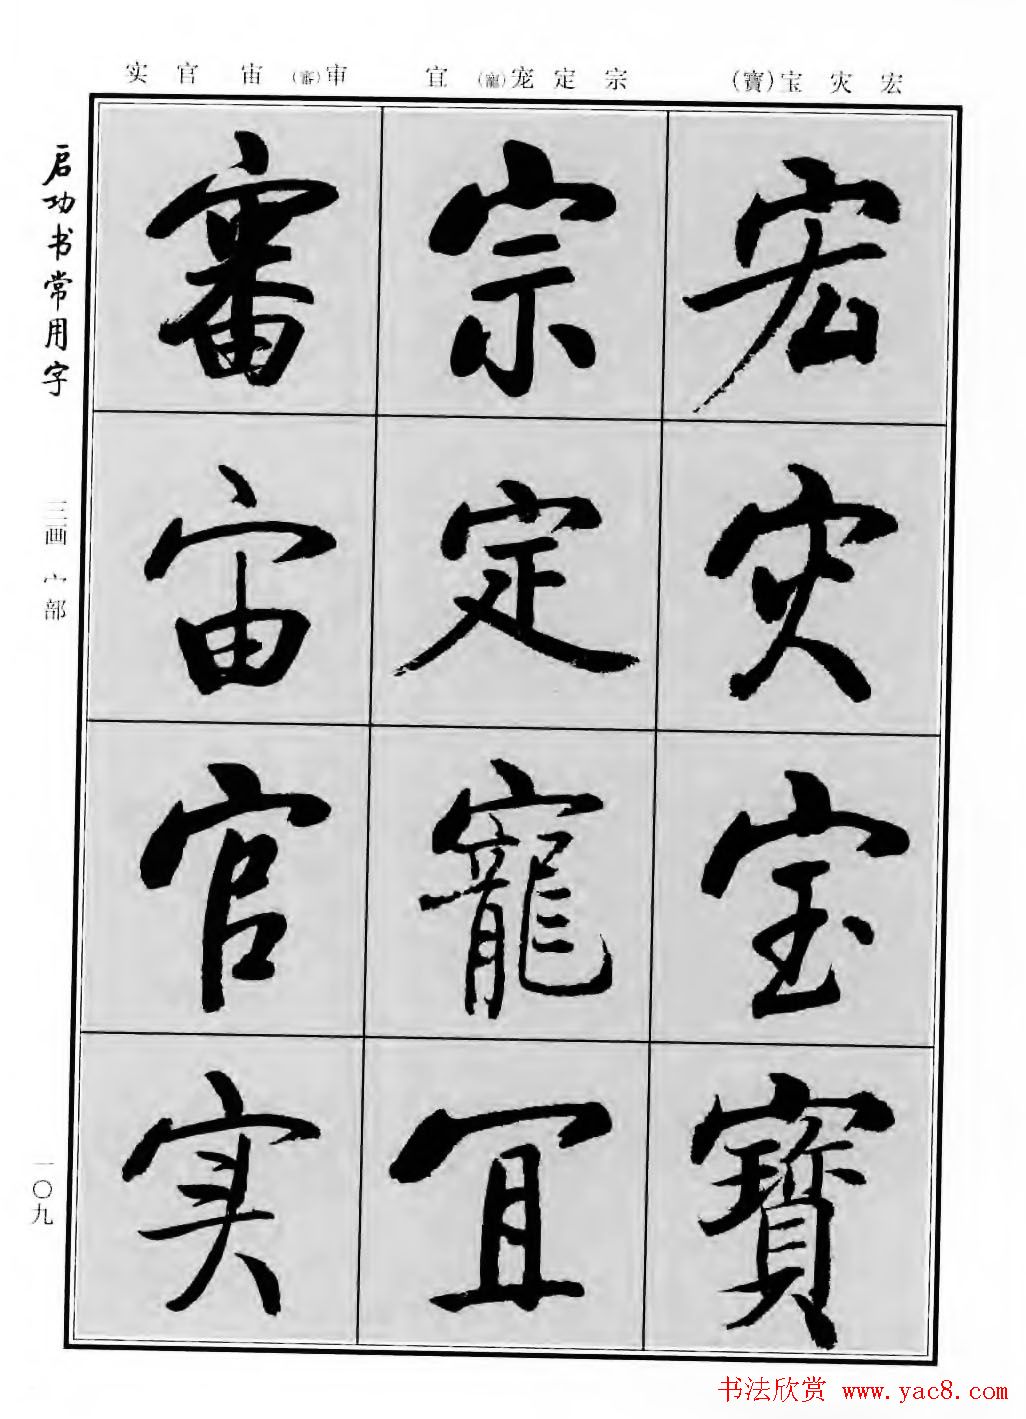 宏 灾 宝(寶)
宗 定 宠(寵) 宜
审(審) 宙 官 实
宏 灾 宝 寶
宗 定 寵 宜
審 宙 官 实
启功书常用字
三画 宀部
一〇九
书法欣赏 www.yac8.com